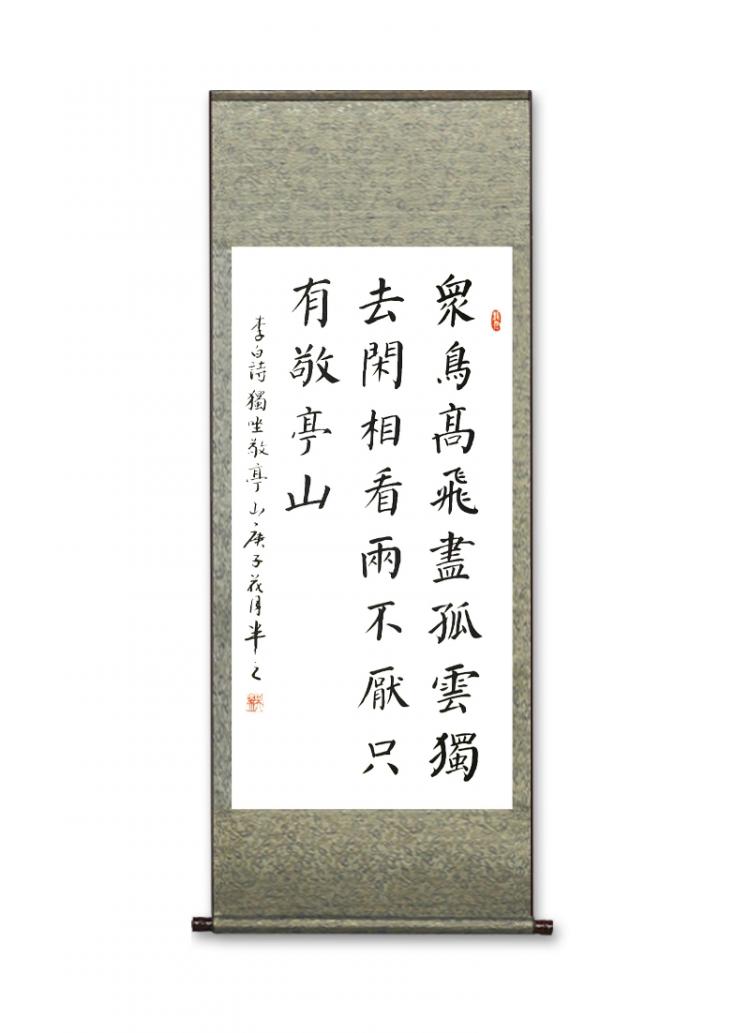 衆鳥高飛盡孤雲獨
去閑相看兩不厭只
有敬亭山
李白詩獨坐敬亭山庚子花月半之